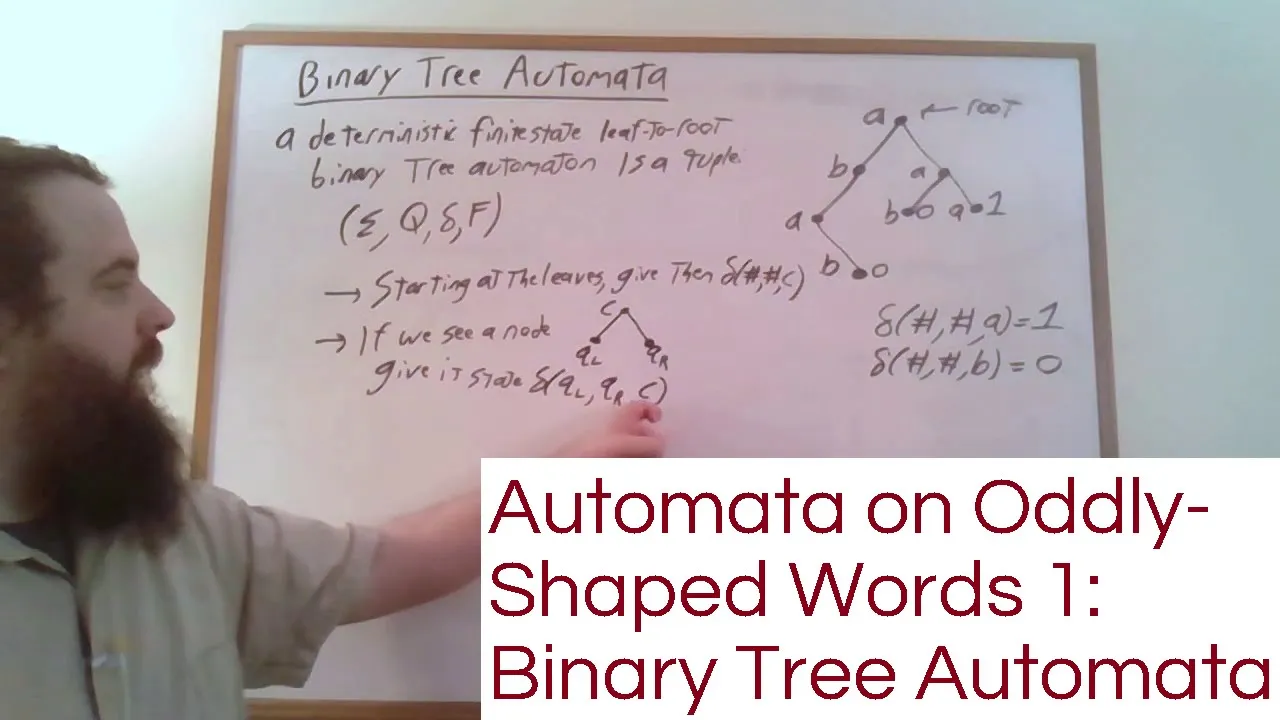 Binary Tree Automata
a deterministic finite state leaf-to-root
binary Tree automaton is a tuple
(Σ, Q, δ, F)
→ Starting at the leaves, give them δ(#,#,c)
→ If we see a node
c
q_L q_R
give it state δ(q_L, q_R, c)
a ← root
b a
a b 0 a 1
b 0
δ(#, #, a) = 1
δ(#, #, b) = 0
Automata on Oddly-
Shaped Words 1:
Binary Tree Automata